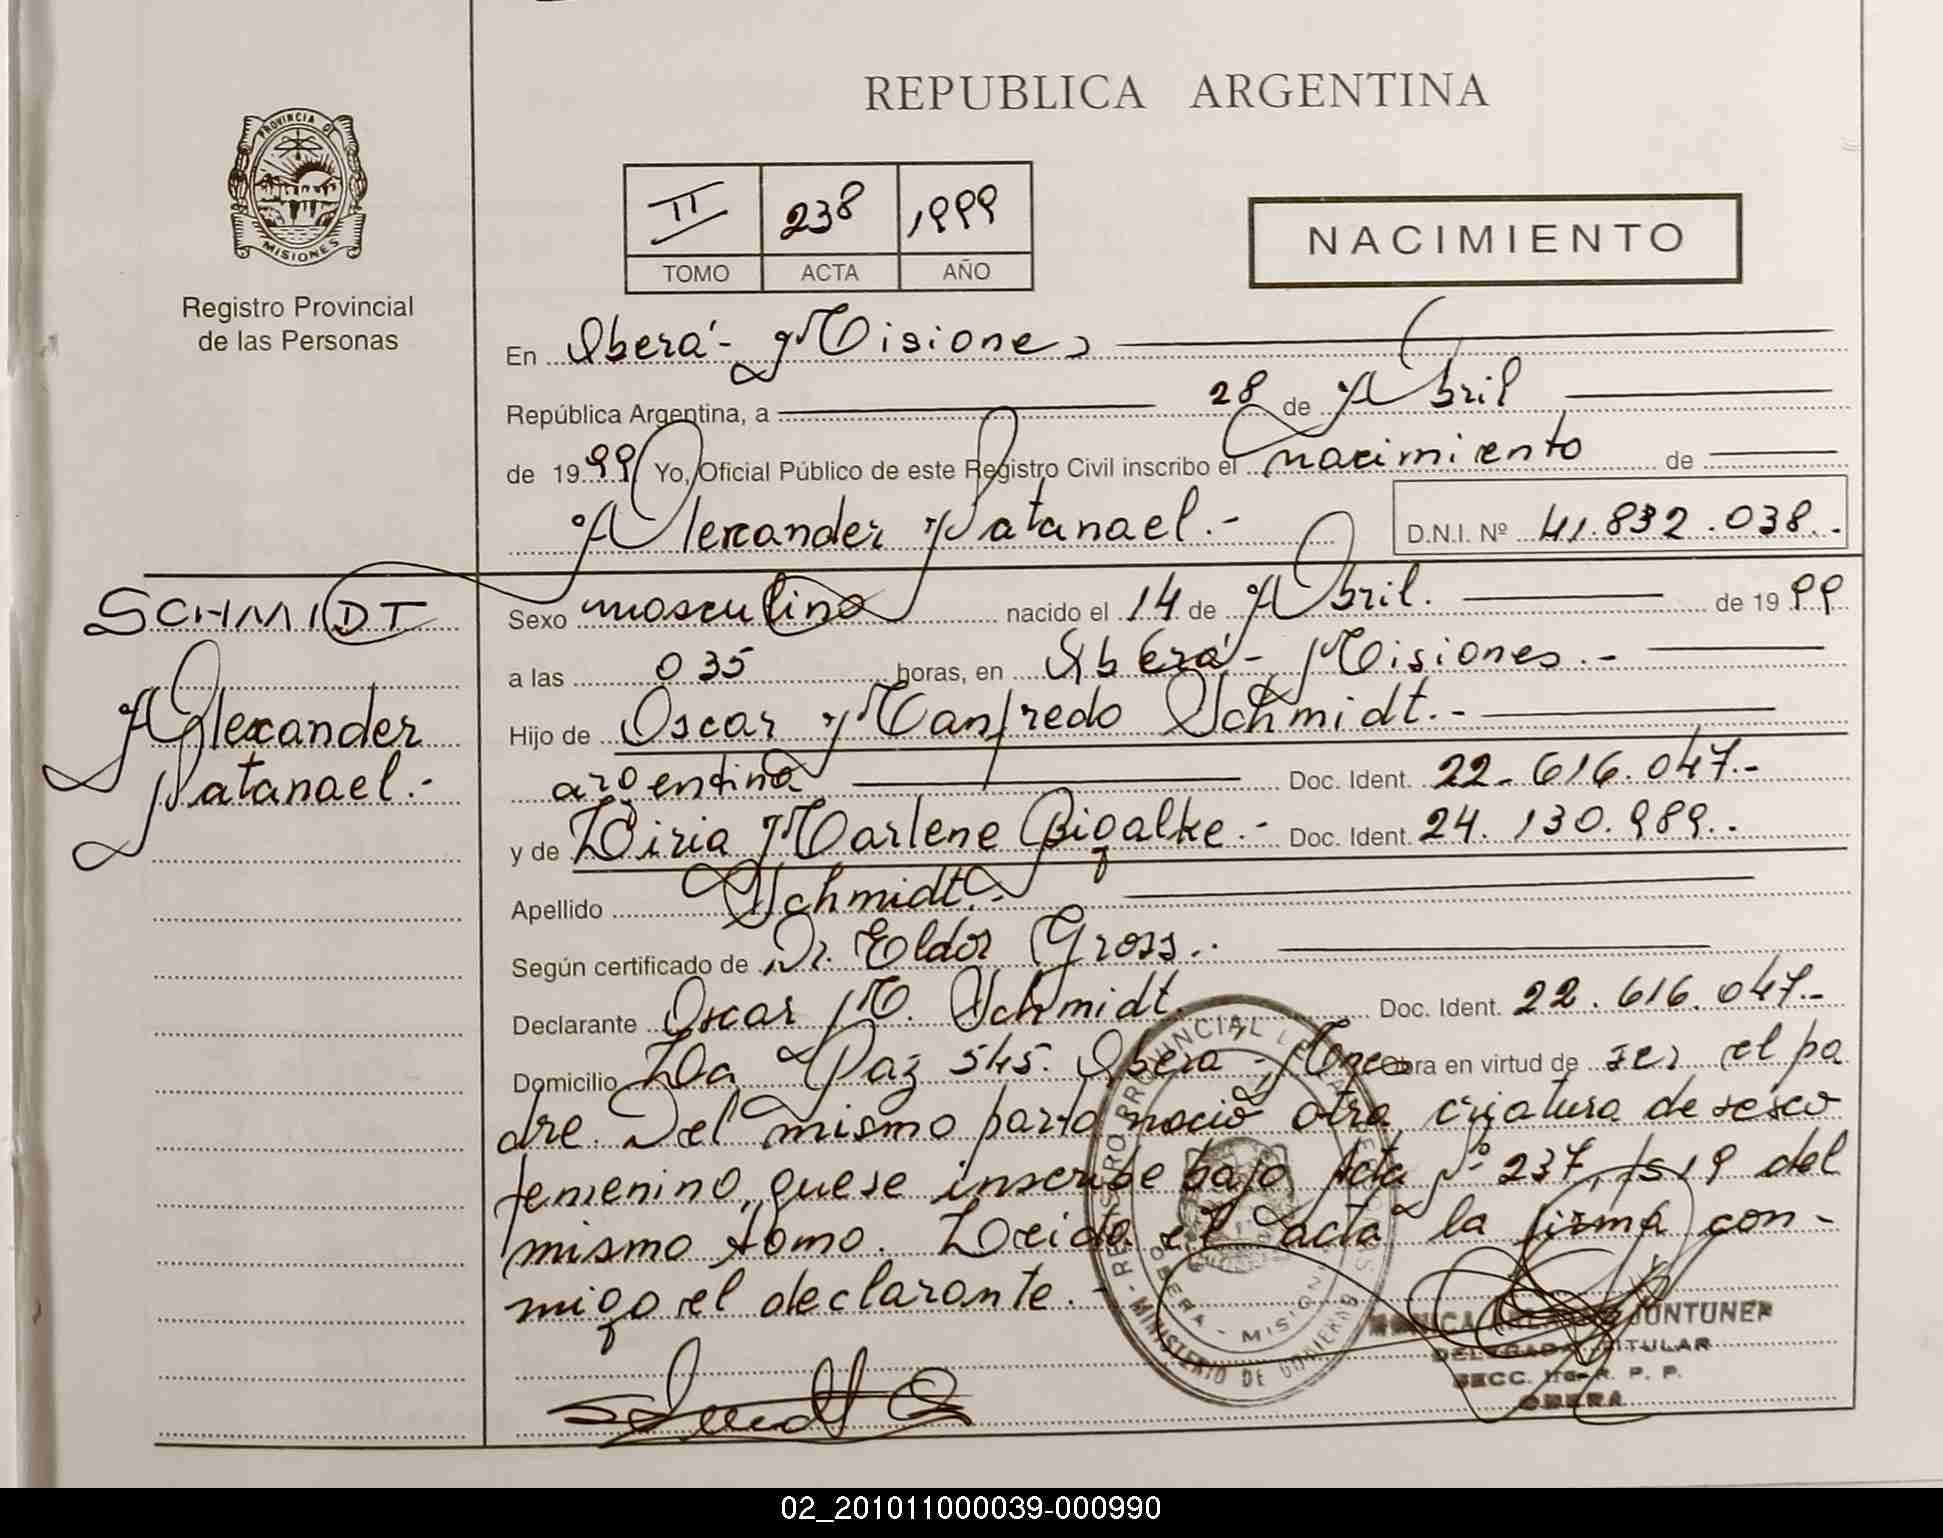 REPUBLICA ARGENTINA
PROVINCIA DE
MISIONES
Registro Provincial
de las Personas
II 238 1999
TOMO ACTA AÑO
NACIMIENTO
En Oberá - Misiones
República Argentina, a 28 de Abril
de 1999 Yo, Oficial Público de este Registro Civil inscribo el nacimiento de
Alexander Natanael.-
D.N.I. Nº 41.832.038.-
SCHMIDT
Alexander
Natanael.-
Sexo masculino nacido el 14 de Abril. de 1999
a las 0 35 horas, en Oberá - Misiones.-
Hijo de Oscar Manfredo Schmidt.-
argentina Doc. Ident. 22.616.047.-
y de Liria Marlene Bigalke.- Doc. Ident. 24.130.989.-
Apellido Schmidt.-
Según certificado de Dr. Eldor Gross.-
Declarante Oscar M. Schmidt. Doc. Ident. 22.616.047.-
Domicilio La Paz 545. Oberá - Mnes Obra en virtud de ser el pa
dre. Del mismo parto nació otra criatura de sexo
femenino, que se inscribe bajo Acta Nº 237, fs 19 del
mismo tomo. Leida el acta la firma con-
migo el declarante.-
REGISTRO PROVINCIAL DE LAS PERSONAS
OBERA - MISIONES
- MINISTERIO DE GOBIERNO
DELEGADA TITULAR
SECC. R. P. P.
OBERA
02_201011000039-000990